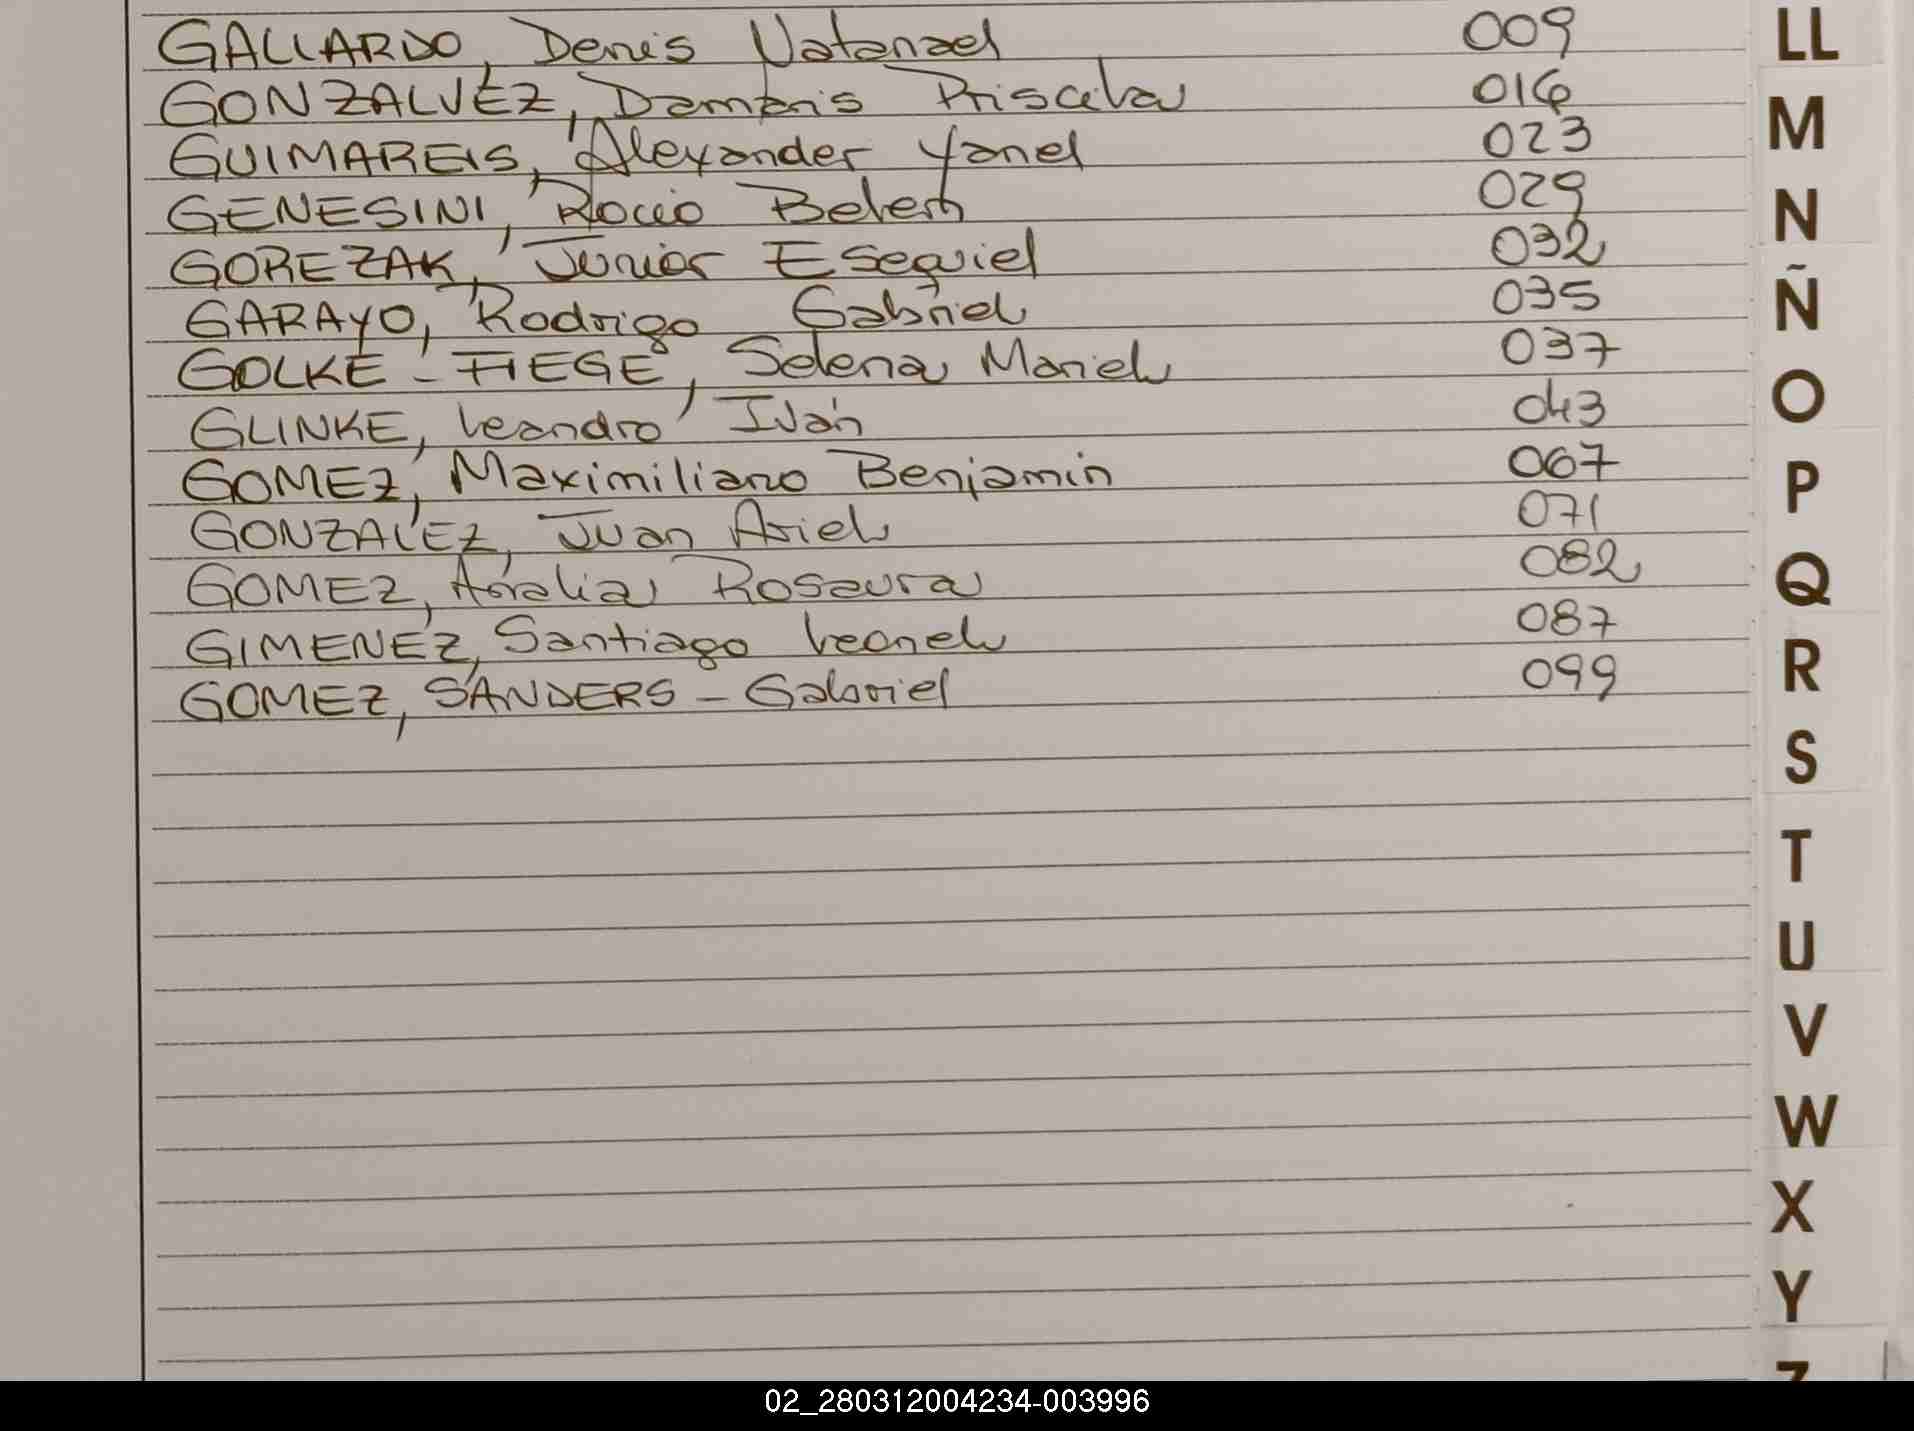 GALLARDO, Denis Natanael 009
GONZALVEZ, Damaris Priscila 016
GUIMAREIS, Alexander Yanel 023
GENESINI, Rocio Belen 029
GOREZAK, Junior Esequiel 032
GARAYO, Rodrigo Gabriel 035
GOLKE - FIEGE, Selena Mariel 037
GLINKE, Leandro Iván 043
GOMEZ, Maximiliano Benjamin 067
GONZALEZ, Juan Ariel 071
GOMEZ, Rosaura 082
GIMENEZ, Santiago Leonel 087
GOMEZ, SANDERS - Gabriel 099
LL
M
N
Ñ
O
P
Q
R
S
T
U
V
W
X
Y
Z
02_280312004234-003996